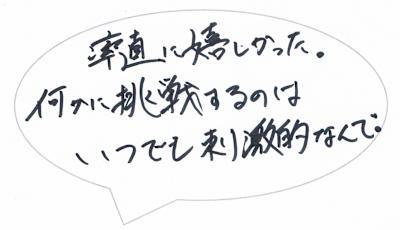 率直に嬉しかった。
何かに挑戦するのは
いつでも刺激的なんで。